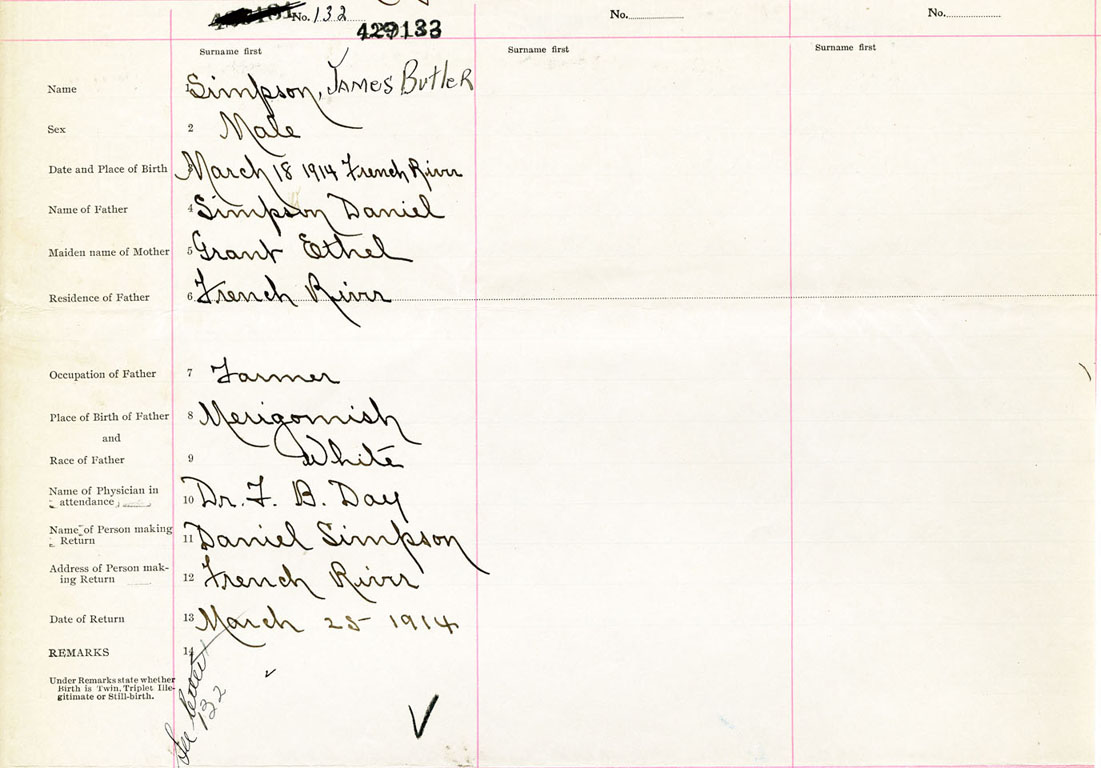 No. 132
No.
No.
429133
Surname first
Surname first
Surname first
Name 1 Simpson, James Butler
Sex 2 Male
Date and Place of Birth 3 March 18 1914 French River
Name of Father 4 Simpson Daniel
Maiden name of Mother 5 Grant Ethel
Residence of Father 6 French River
Occupation of Father 7 Farmer
Place of Birth of Father 8 Merigomish
and
Race of Father 9 White
Name of Physician in
attendance 10 Dr. F. B. Day
Name of Person making
Return 11 Daniel Simpson
Address of Person mak-
ing Return 12 French River
Date of Return 13 March 25 1914
REMARKS 14
Under Remarks state whether
Birth is Twin, Triplet Ille-
gitimate or Still-birth.
See letter
132